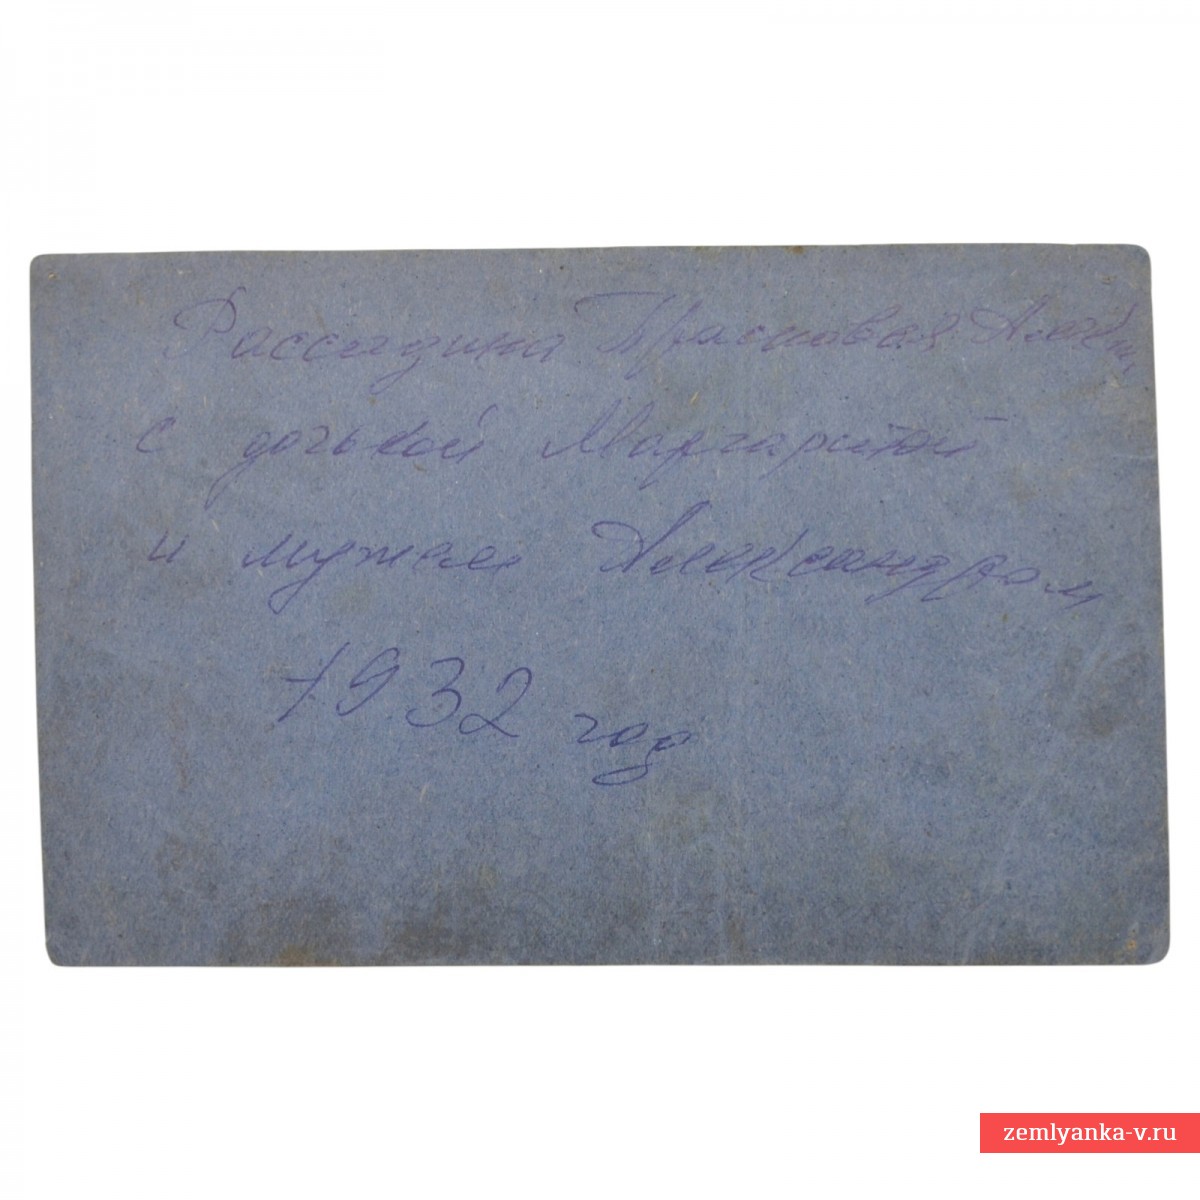 Рассадина Прасковея
с дочькой Маргаритой
и мужем Александром
1932 год
zemlyanka-v.ru